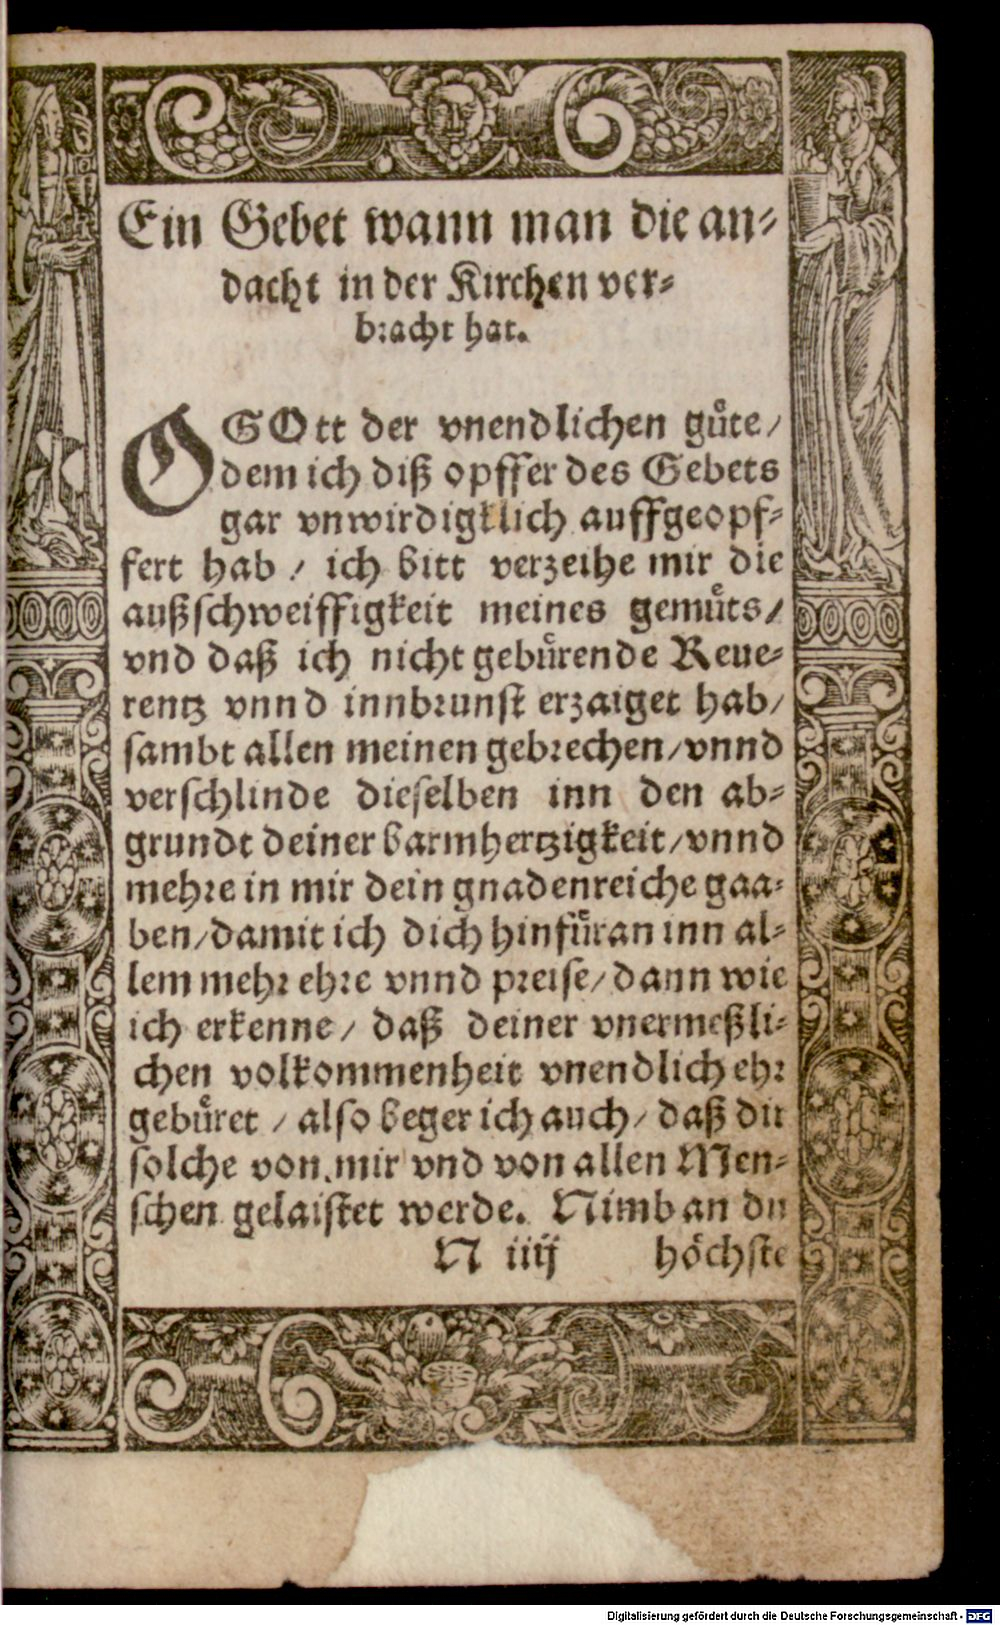 Ein Gebet wann man die an-
dacht in der Kirchen ver-
bracht hat.
O GOtt der vnendlichen guͤte/
dem ich diß opffer des Gebets
gar vnwirdigklich auffgeopf-
fert hab / ich bitt verzeihe mir die
außschweiffigkeit meines gemuͤts/
vnd daß ich nicht gebuͤrende Reue-
rentz vnnd innbrunst erzaiget hab/
sambt allen meinen gebrechen/vnnd
verschlinde dieselben inn den ab-
grundt deiner barmhertzigkeit/vnnd
mehre in mir dein gnadenreiche gaa-
ben/damit ich dich hinfuͤran inn al-
lem mehr ehre vnnd preise/dann wie
ich erkenne/ daß deiner vnermeßli-
chen volkommenheit vnendlich ehr
gebuͤret / also beger ich auch/ daß dir
solche von mir vnd von allen Men-
schen gelaistet werde. Nimb an du
N iiij höchste
Digitalisierung gefördert durch die Deutsche Forschungsgemeinschaft - DFG